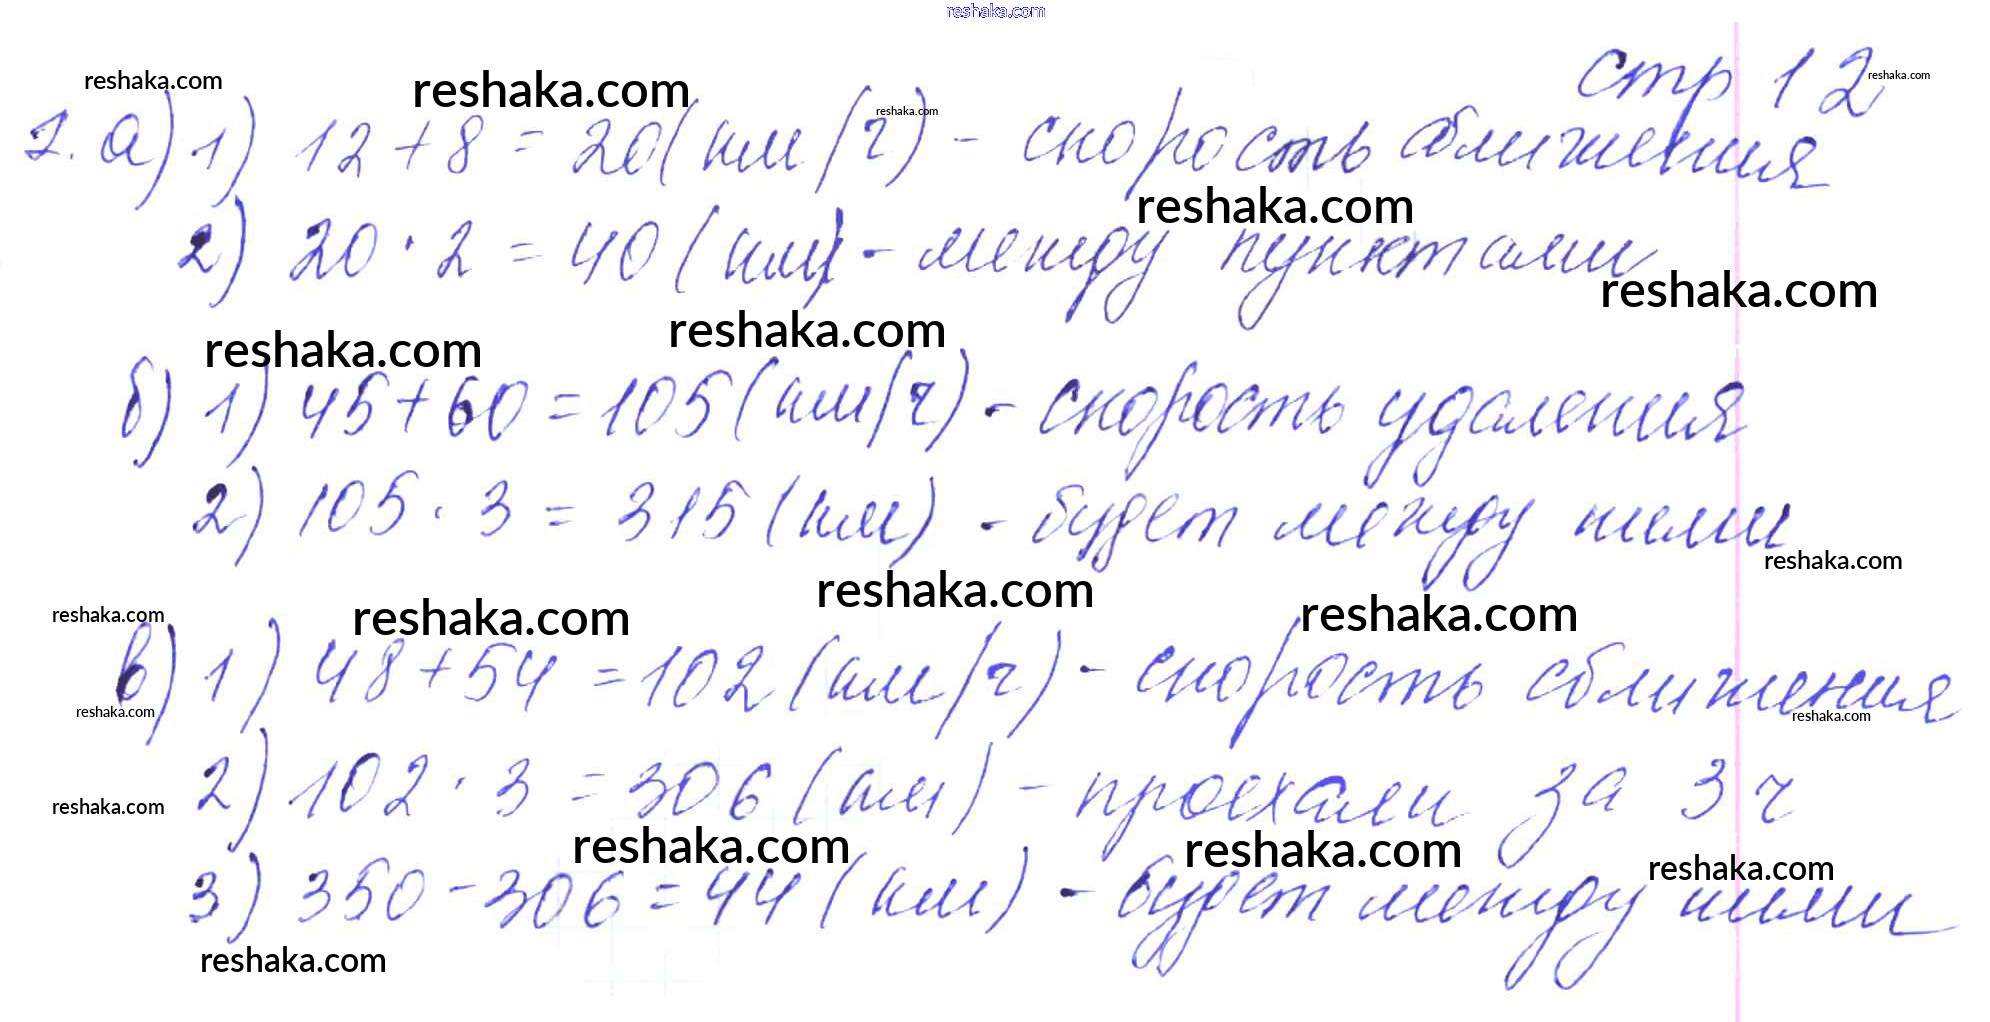 reshaka.com
стр 12
reshaka.com reshaka.com reshaka.com reshaka.com
1. а) 1) 12 + 8 = 20 (км/ч) - скорость сближения
reshaka.com
2) 20 · 2 = 40 (км) - между пунктами
reshaka.com
reshaka.com reshaka.com
б) 1) 45 + 60 = 105 (км/ч) - скорость удаления
2) 105 · 3 = 315 (км) - будет между ними
reshaka.com
reshaka.com reshaka.com reshaka.com reshaka.com
в) 1) 48 + 54 = 102 (км/ч) - скорость сближения
reshaka.com reshaka.com
2) 102 · 3 = 306 (км) - проехали за 3 ч
reshaka.com
reshaka.com reshaka.com reshaka.com
3) 350 - 306 = 44 (км) - будет между ними
reshaka.com